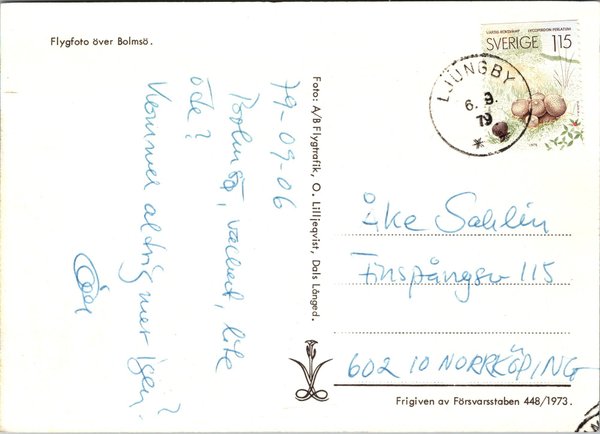 Flygfoto över Bolmsö.
79-09-06
Bolmsö, vackert, lite
öde?
Kommer aldrig mer igen?
Foto: A/B Flygtrafik, O. Lilljeqvist, Dals Långed.
LYCOPERDON PERLATUM
SVERIGE 115
LJUNGBY
6. 9.
79
Åke Sahlin
Finspångsv 115
602 10 NORRKÖPING
Frigiven av Försvarsstaben 448/1973.